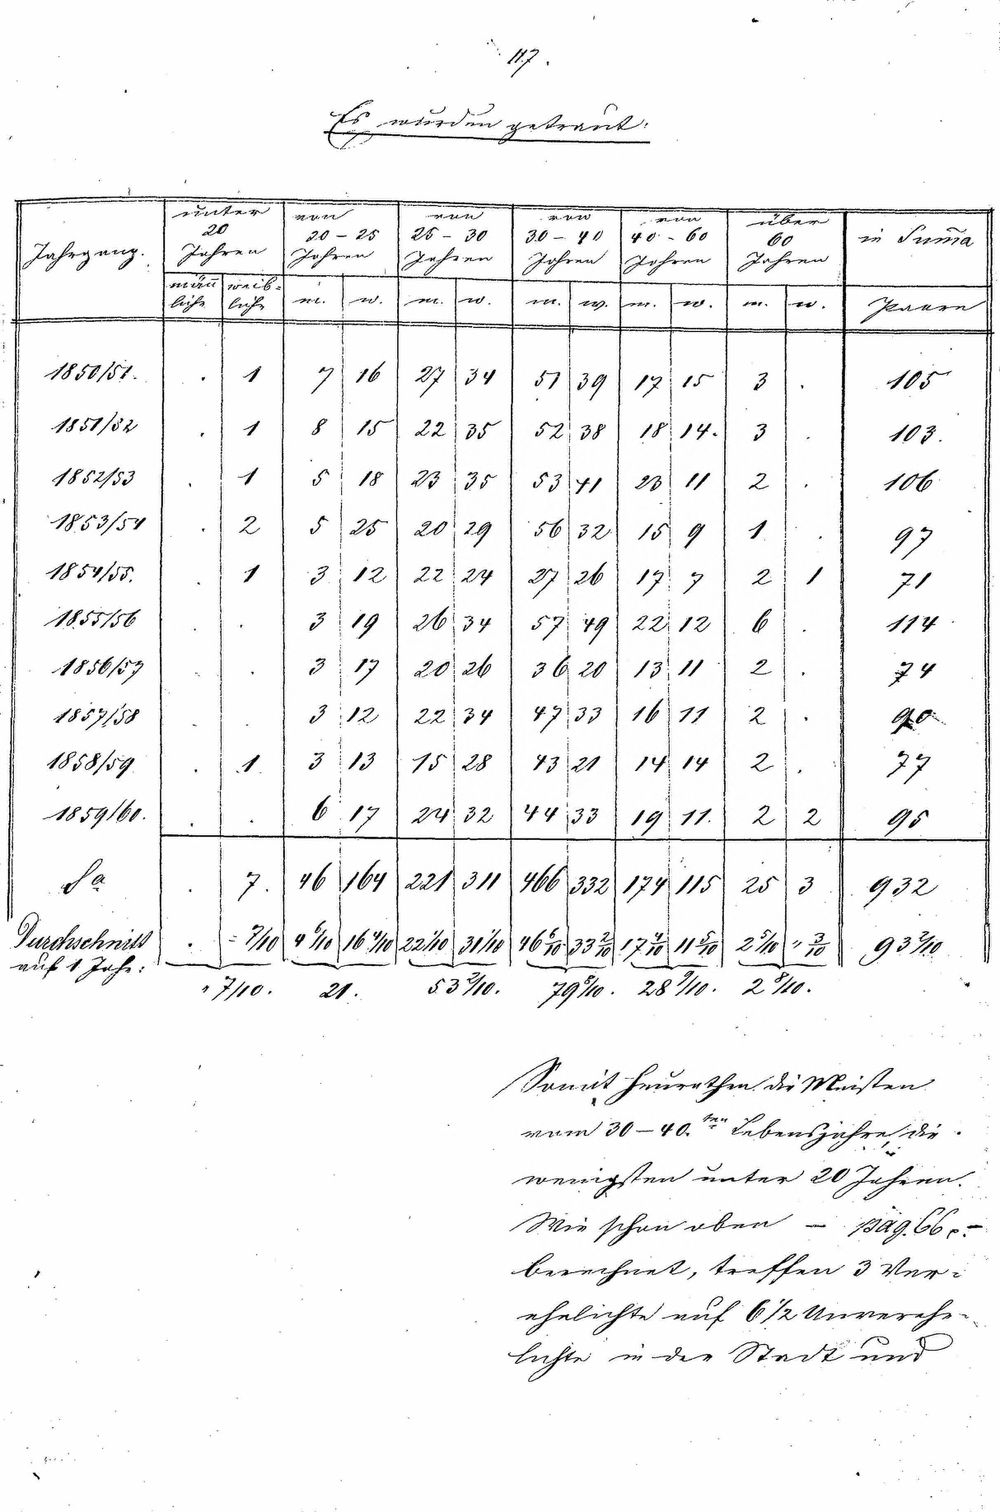 117.
Es wurden getraut:
Jahrgang. unter 20 Jahren von 20 – 25 Jahren von 25 – 30 Jahren von 30 – 40 Jahren von 40 – 60 Jahren über 60 Jahren in Suma
männliche weibliche m. w. m. w. m. w. m. w. m. w. Paare
1850/51. . 1 7 16 27 34 51 39 17 15 3 . 105
1851/52 . 1 8 15 22 35 52 38 18 14. 3 . 103.
1852/53 . 1 5 18 23 35 53 41 23 11 2 . 106
1853/54 . 2 5 25 20 29 56 32 15 9 1 . 97
1854/55. . 1 3 12 22 24 27 26 17 7 2 1 71
1855/56 . . 3 19 26 34 57 49 22 12 6 . 114
1856/57 . . 3 17 20 26 36 20 13 11 2 . 74
1857/58 . . 3 12 22 34 47 33 16 11 2 . 90
1858/59 . 1 3 13 15 28 43 21 14 14 2 . 77
1859/60. . . 6 17 24 32 44 33 19 11. 2 2 95
Sa . 7. 46 164 221 311 466 332 174 115 25 3 932
Durchschnitt auf 1 Jahr: . " 7/10 4 6/10 16 4/10 22 1/10 31 1/10 46 6/10 33 2/10 17 4/10 11 5/10 2 5/10 " 3/10 93 2/10
" 7/10. 21. 53 2/10. 79 8/10. 28 9/10. 2 8/10.
Somit heurathen die Meisten
vom 30 – 40.ten Lebensjahre, die
wenigsten unter 20 Jahren.
Wie schon oben – pag. 66. –
berechnet, treffen 3 Ver-
ehelichte auf 6 1/2 Unverehe-
lichte in der Stadt und